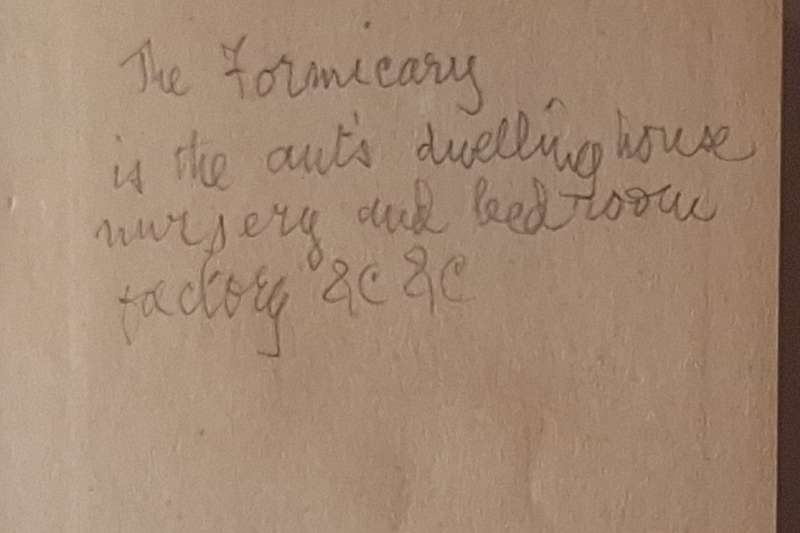 The Formicary
is the ant's dwelling house
nursery and bedroom
factory &c &c